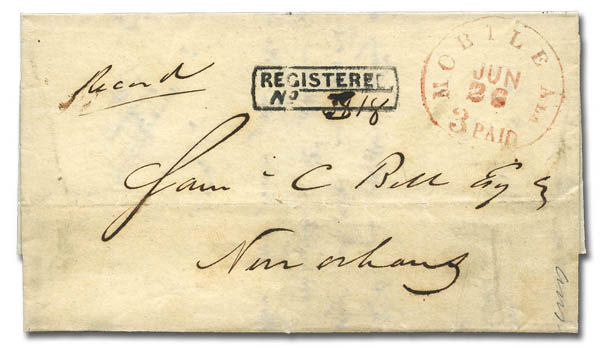 Record
REGISTERED
No 1818
MOBILE Ala
JUN
26
3 PAID
Sam C Bell Esq
New orleans